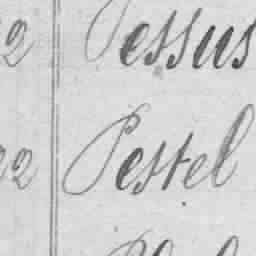 2 Pessus
22 Pestel